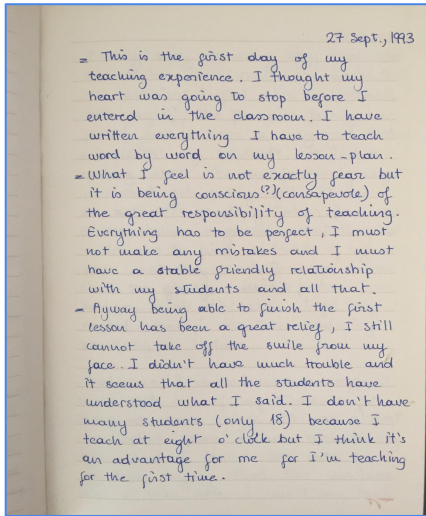 27 Sept., 1993
= This is the first day of my
teaching experience. I thought my
heart was going to stop before I
entered in the classroom. I have
written everything I have to teach
word by word on my lesson-plan.
= What I feel is not exactly fear but
it is being conscious(?)(consapevole) of
the great responsibility of teaching.
Everything has to be perfect, I must
not make any mistakes and I must
have a stable friendly relationship
with my students and all that.
= Ayway being able to finish the first
lesson has been a great relief, I still
cannot take off the smile from my
face. I didn't have much trouble and
it seems that all the students have
understood what I said. I don't have
many students (only 18) because I
teach at eight o'clock but I think it's
an advantage for me for I'm teaching
for the first time.